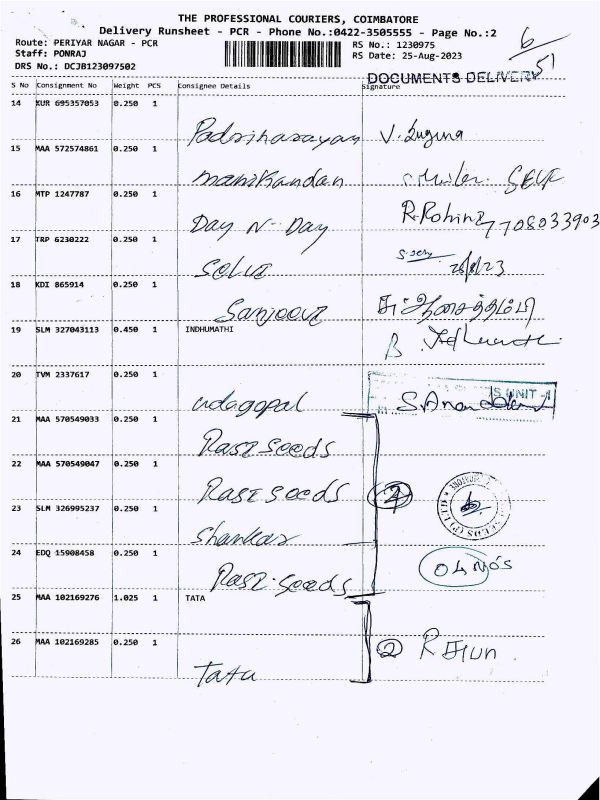 THE PROFESSIONAL COURIERS, COIMBATORE
Delivery Runsheet - PCR - Phone No.:0422-3505555 - Page No.:2
Route: PERIYAR NAGAR - PCR
Staff: PONRAJ
DRS No.: DCJB123097502
RS No.: 1230975
RS Date: 25-Aug-2023
6
51
DOCUMENTS DELIVERY
S No Consignment No Weight PCS Consignee Details Signature
14 KUR 695357053 0.250 1
Padriharayan V. Suguna
15 MAA 572574861 0.250 1
manikandan SELF
16 MTP 1247787 0.250 1
Day N- Day R.Rohini 7708033903
17 TRP 6230222 0.250 1
Selvi 26/8/23
18 KDI 865914 0.250 1
Sanjeevi
19 SLM 327043113 0.450 1 INDHUMATHI
B.
20 TVM 2337617 0.250 1
S UNIT -
udagopal S.Anandan
21 MAA 570549033 0.250 1
Rasi seeds
22 MAA 570549047 0.250 1
Rasi seeds 4
23 SLM 326995237 0.250 1
SEEDS (P) LTD
Shankar
24 EDQ 15908458 0.250 1
04 Nos
Rasi seeds
25 MAA 102169276 1.025 1 TATA
26 MAA 102169285 0.250 1
2
Tata